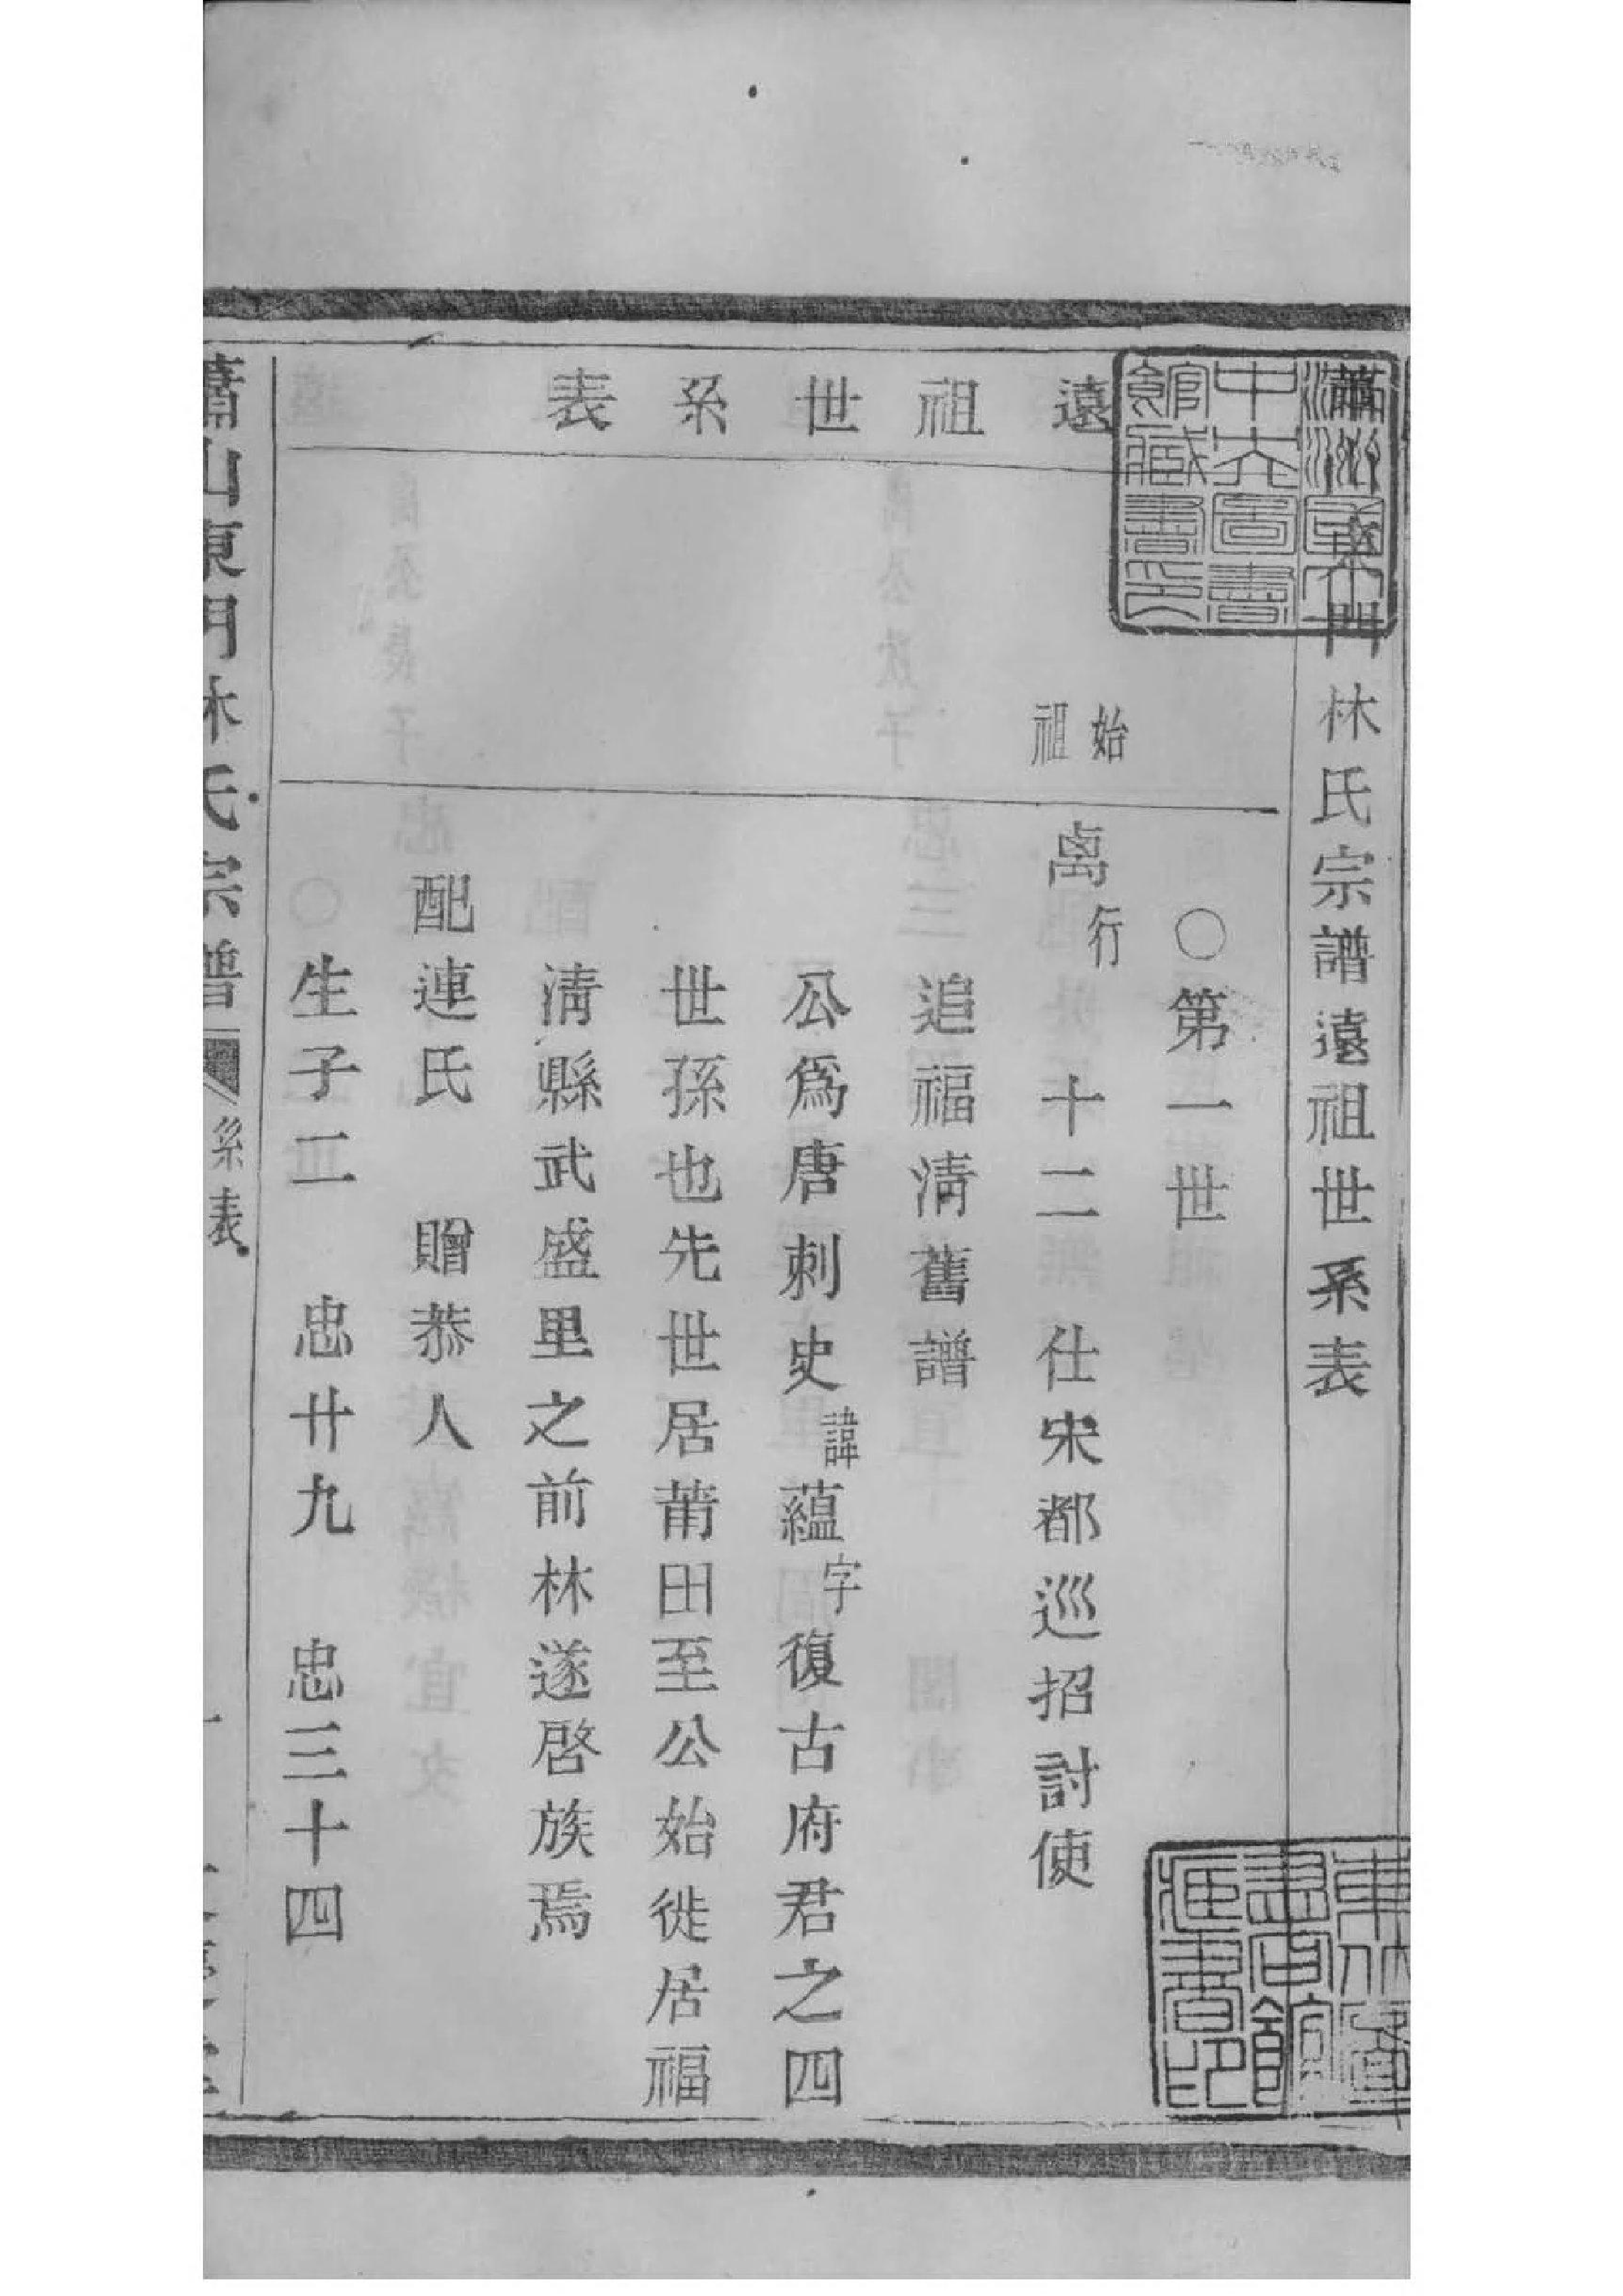 蕭山東門林氏宗譜遠祖世系表
遠祖世系表
始祖
○第一世
禼行十二 仕宋都巡招討使
追福淸舊譜
公爲唐刺史諱蘊字復古府君之四
世孫也先世居莆田至公始徙居福
淸縣武盛里之前林遂啓族焉
配連氏 贈恭人
生子二 忠廿九 忠三十四
蕭山東門林氏宗譜 系表 一